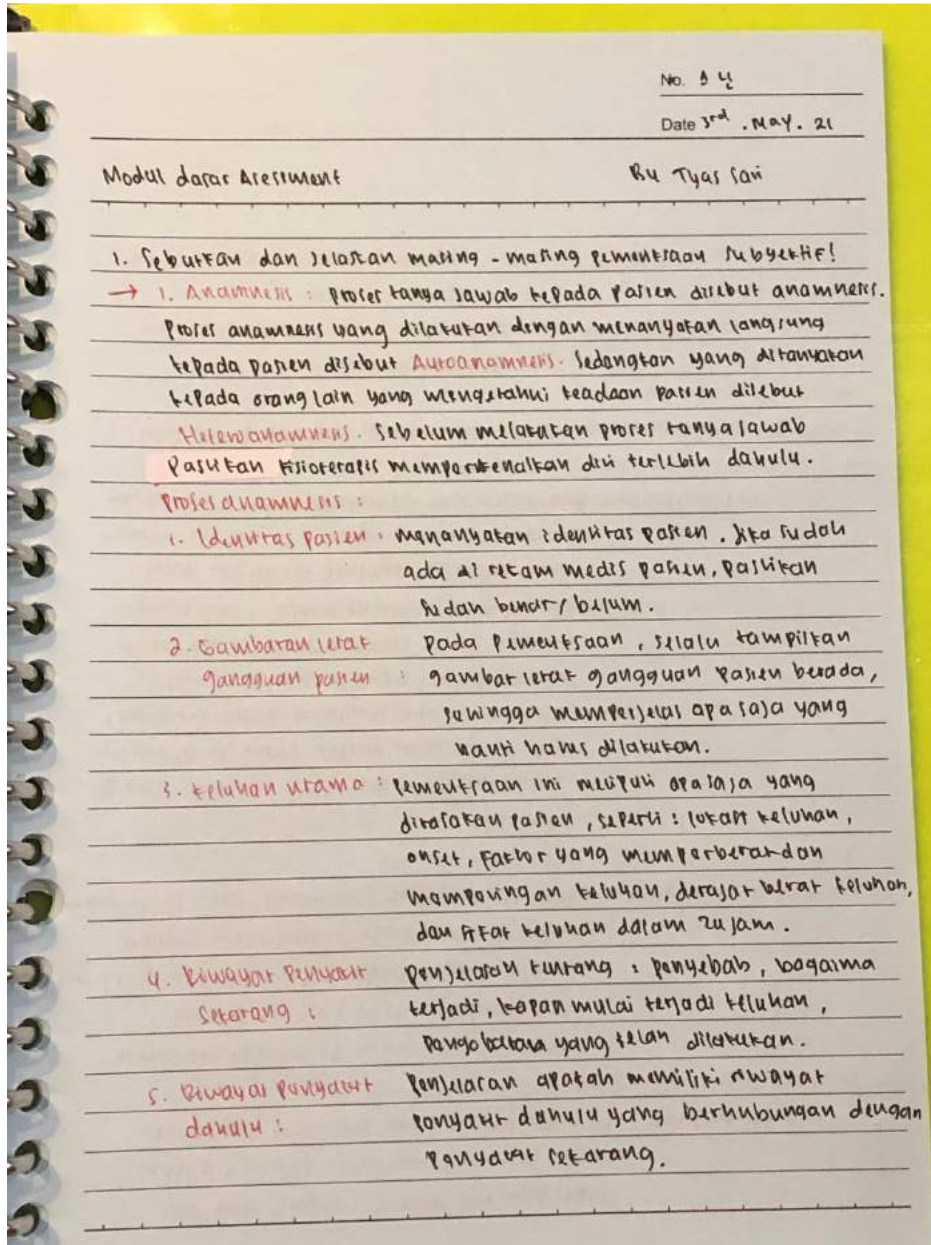 No.
Date 3rd . May . 21
Modul dasar Asessment Bu Tyas Sari
1. Sebutkan dan jelaskan masing - masing pemeriksaan subyektif!
→ 1. Anamnesis : proses tanya jawab kepada pasien disebut anamnesis.
Proses anamnesis yang dilakukan dengan menanyakan langsung
kepada pasien disebut Autoanamnesis. Sedangkan yang ditanyakan
kepada orang lain yang mengetahui keadaan pasien disebut
Heteroanamnesis. Sebelum melakukan proses tanya jawab
Pastikan Fisioterapis memperkenalkan diri terlebih dahulu.
Proses anamnesis :
1. Identitas pasien : menanyakan identitas pasien. Jika sudah
ada di rekam medis pasien, pastikan
sudah benar / belum.
2. Gambaran letak pada pemeriksaan, selalu tampilkan
gangguan pasien : gambar letak gangguan pasien berada,
sehingga memperjelas apa saja yang
nanti harus dilakukan.
3. Keluhan utama : pemeriksaan ini meliputi apa saja yang
dirasakan pasien, seperti : lokasi keluhan,
onset, faktor yang memperberat dan
keluhan, derajat berat keluhan,
dan sifat keluhan dalam 24 jam.
4. Riwayat Penyakit penjelasan tentang : penyebab, bagaima
Sekarang : terjadi, kapan mulai terjadi keluhan,
yang telah dilakukan.
5. Riwayat Penyakit Penjelasan apakah memiliki riwayat
dahulu : penyakit dahulu yang berhubungan dengan
penyakit sekarang.